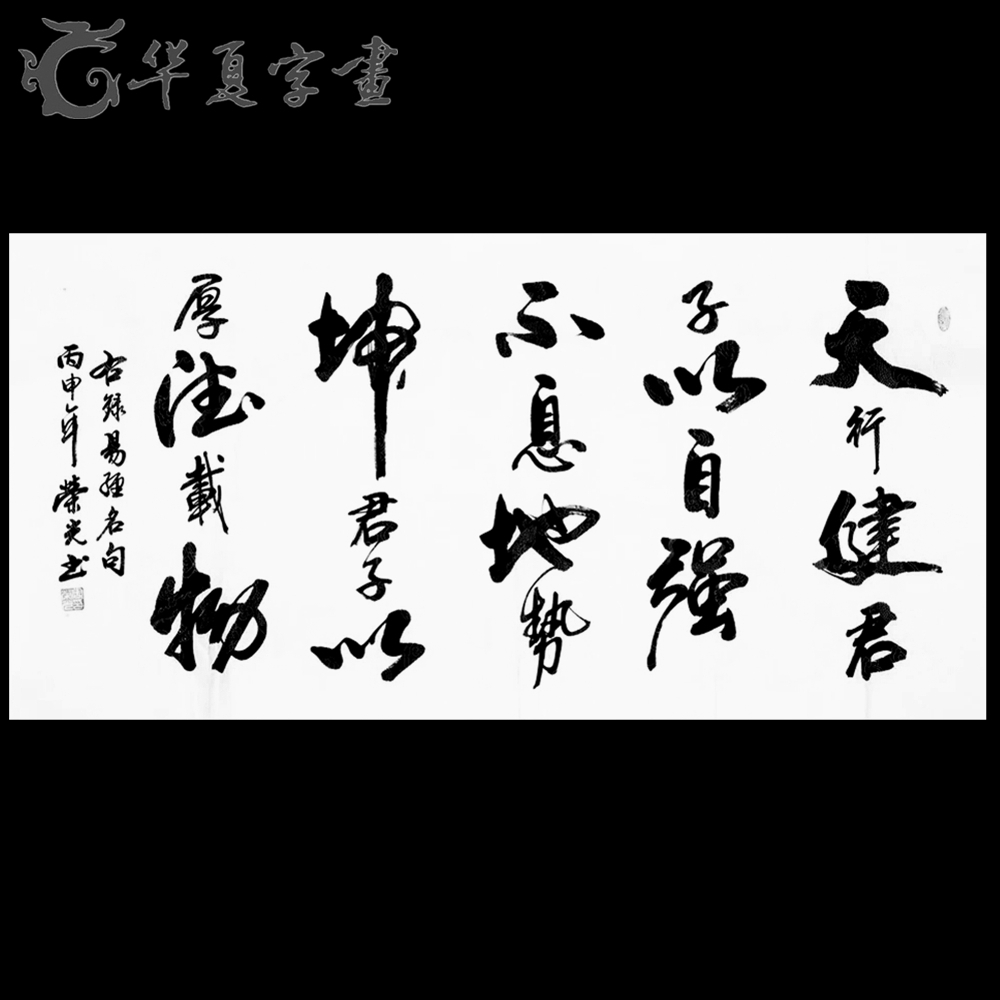 华夏字畫
天行健君
子以自强
不息地势
坤君子以
厚德載物
右錄易經名句
丙申年榮光书